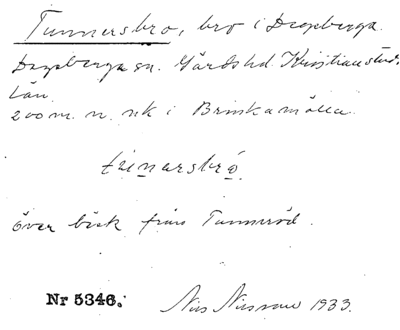 Tunnersbro, bro i Degeberga.
Degeberga sn. Gärds hd. Kristianstads
län.
200 m. n. nk i Brinkamölla
tunarsbró
över bäck från Tunneröd.
Nr 5346.
Nils Nilsson 1933.